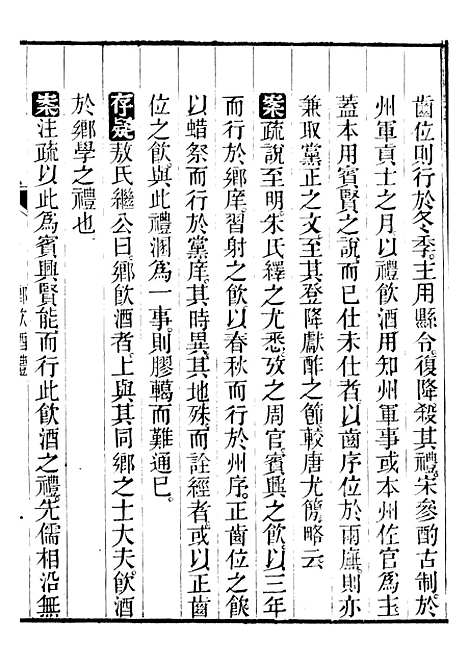 齒位則行於冬季主用縣令復降殺其禮宋參酌古制於
州軍貢士之月以禮飲酒用知州軍事或本州佐官為主
蓋本用賓賢之說而已仕未仕者以齒序位於兩廡則亦
兼取黨正之文至其登降獻酢之節較唐尤簡略云
案疏說至明朱氏繹之尤悉攷之周官賓興之飲以三年
而行於鄉庠習射之飲以春秋而行於州序正齒位之飲
以蜡祭而行於黨庠其時異其地殊而詮經者或以正齒
位之飲與此禮溷為一事則膠轕而難通已
存疑敖氏繼公曰鄉飲酒者上與其同鄉之士大夫飲酒
於鄉學之禮也
案注疏以此為賓興賢能而行此飲酒之禮先儒相沿無
鄉飲酒禮